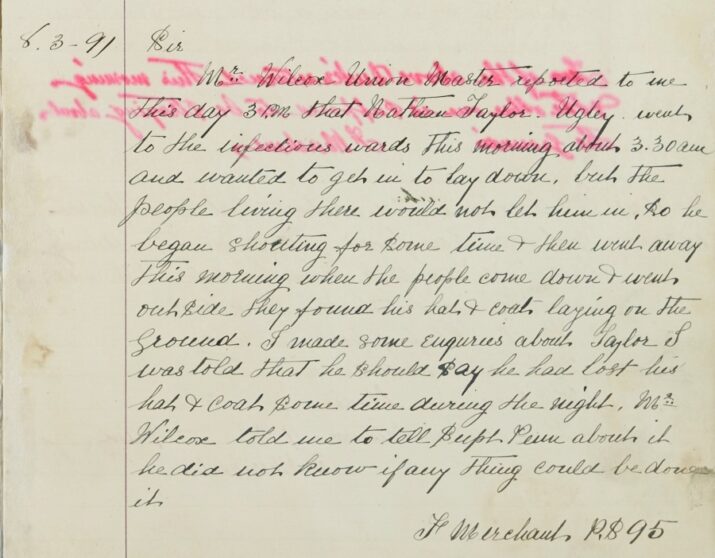 8.3-91 Sir
Mr. Wilcox Union Master reported to me
this day 3 PM that Nathan Taylor. Ugley went
to the infectious wards this morning about 3.30am
and wanted to get in to lay down, but the
people living there would not let him in, so he
began shouting for some time & then went away
this morning when the people come down & went
outside they found his hat & coat laying on the
Ground. I made some enquries about Taylor I
was told that he should say he had lost his
hat & coat some time during the night. Mr.
Wilcox told me to tell Supt Penn about it
he did not know if any thing could be done
it
F Merchant P.S 95